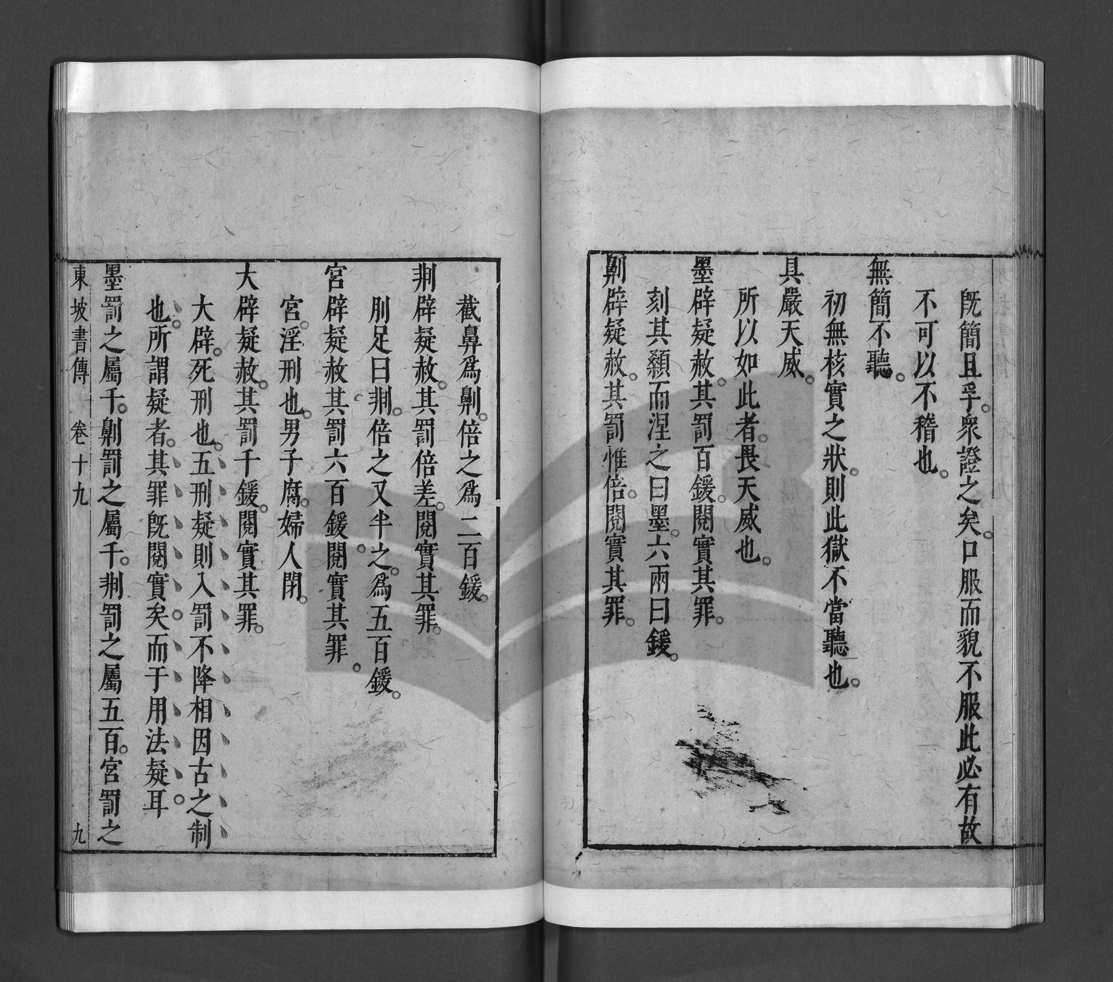 既簡且孚。衆證之矣。口服而貌不服此必有故
不可以不稽也。
無簡不聽。
初無核實之狀。則此獄不當聽也。
具嚴天威。
所以如此者。畏天威也。
墨辟疑赦。其罰百鍰。閱實其罪。
刻其顙而涅之曰墨。六兩曰鍰。
劓辟疑赦。其罰惟倍。閱實其罪。
截鼻爲劓。倍之爲二百鍰。
剕辟疑赦。其罰倍差。閱實其罪。
刖足曰剕。倍之又半之。爲五百鍰。
宮辟疑赦其罰六百鍰。閱實其罪。
宮。淫刑也。男子腐。婦人閉。
大辟疑赦。其罰千鍰。閱實其罪。
大辟。死刑也。五刑疑則入罰不降相因古之制
也。所謂疑者。其罪既閱實矣。而于用法疑耳。
墨罰之屬千。劓罰之屬千。剕罰之屬五百。宮罰之
東坡書傳 卷十九 九